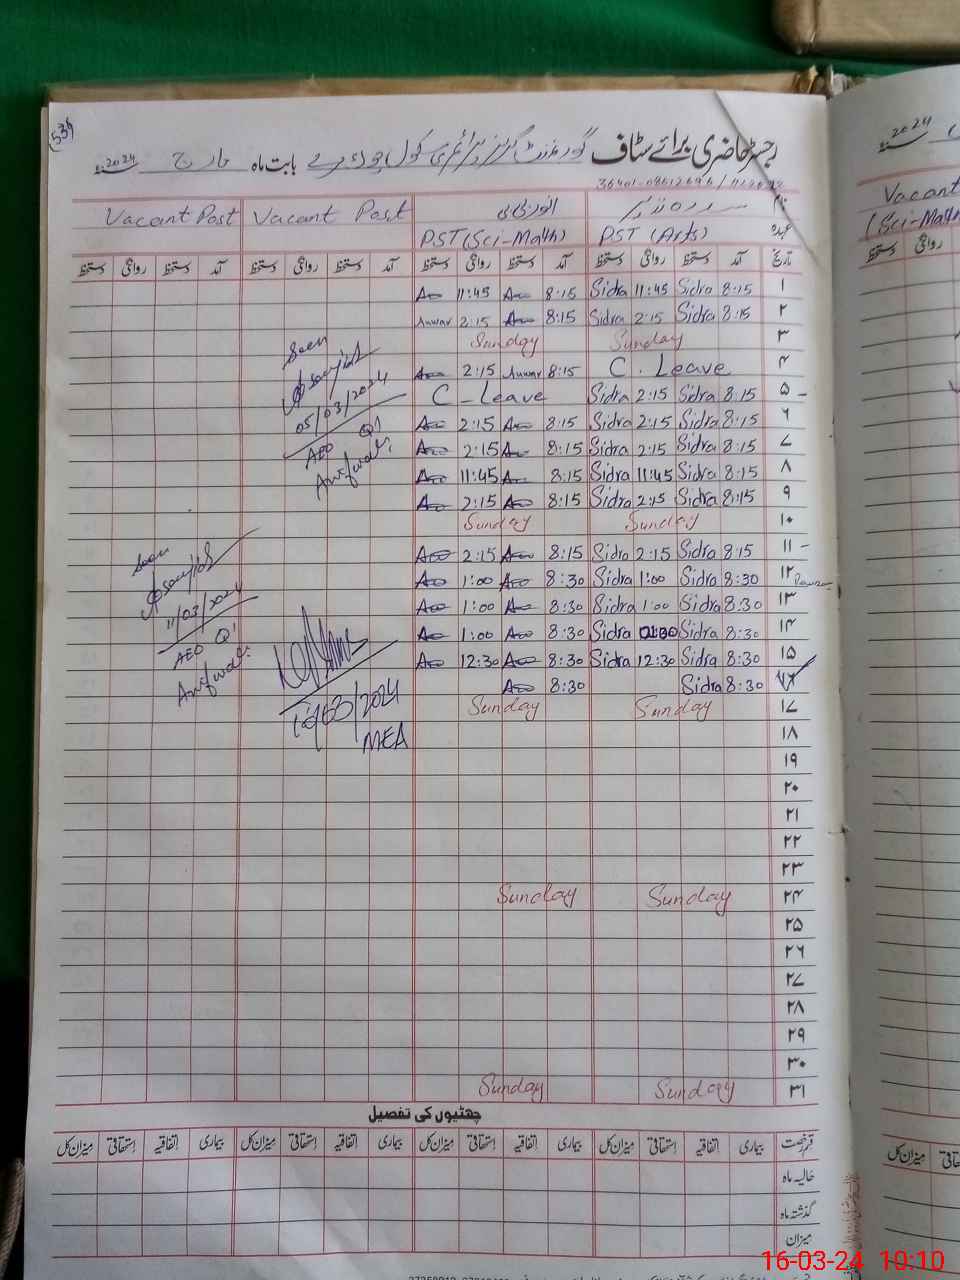 539
رجسٹر حاضری برائے سٹاف گورنمنٹ گرلز پرائمری سکول بابت ماہ مارچ سنہ 2024ء
نام سدرہ نذیر Vacant Post Vacant Post
عہدہ PST (Arts) PST (Sci-Math)
تاریخ آمد دستخط روانگی دستخط آمد دستخط روانگی دستخط آمد دستخط روانگی دستخط آمد دستخط روانگی دستخط
۱ 8:15 Sidra 11:45 Sidra 8:15 11:45
۲ 8:15 Sidra 2:15 Sidra 8:15 2:15 Anwar
۳ Sunday Sunday
۴ C. Leave 8:15 Anwar 2:15
۵ 8:15 Sidra 2:15 Sidra C-Leave
۶ 8:15 Sidra 2:15 Sidra 8:15 2:15
۷ 8:15 Sidra 2:15 Sidra 8:15 2:15
۸ 8:15 Sidra 11:45 Sidra 8:15 11:45
۹ 8:15 Sidra 2:15 Sidra 8:15 2:15
۱۰ Sunday Sunday
۱۱ 8:15 Sidra 2:15 Sidra 8:15 2:15
۱۲ 8:30 Sidra 1:00 Sidra 8:30 1:00
۱۳ 8:30 Sidra 1:00 Sidra 8:30 1:00
۱۴ 8:30 Sidra Sidra 8:30 1:00
۱۵ 8:30 Sidra 12:30 Sidra 8:30 12:30
۱۶ 8:30 Sidra 8:30
۱۷ Sunday Sunday
۱۸
۱۹
۲۰
۲۱
۲۲
۲۳
۲۴ Sunday Sunday
۲۵
۲۶
۲۷
۲۸
۲۹
۳۰
۳۱ Sunday Sunday
Seen
05/03/2024
AEO
Seen
11/03/2024
AEO
16/03/2024
MEA
چھٹیوں کی تفصیل
قسم رخصت بیماری اتفاقیہ استحقاقی میزان کل بیماری اتفاقیہ استحقاقی میزان کل بیماری اتفاقیہ استحقاقی میزان کل بیماری اتفاقیہ استحقاقی میزان کل
حالیہ ماہ
گذشتہ ماہ
میزان
سنہ 2024ء
Vacant
(Sci-Math
دستخط
میزان کل
16-03-24 10:10